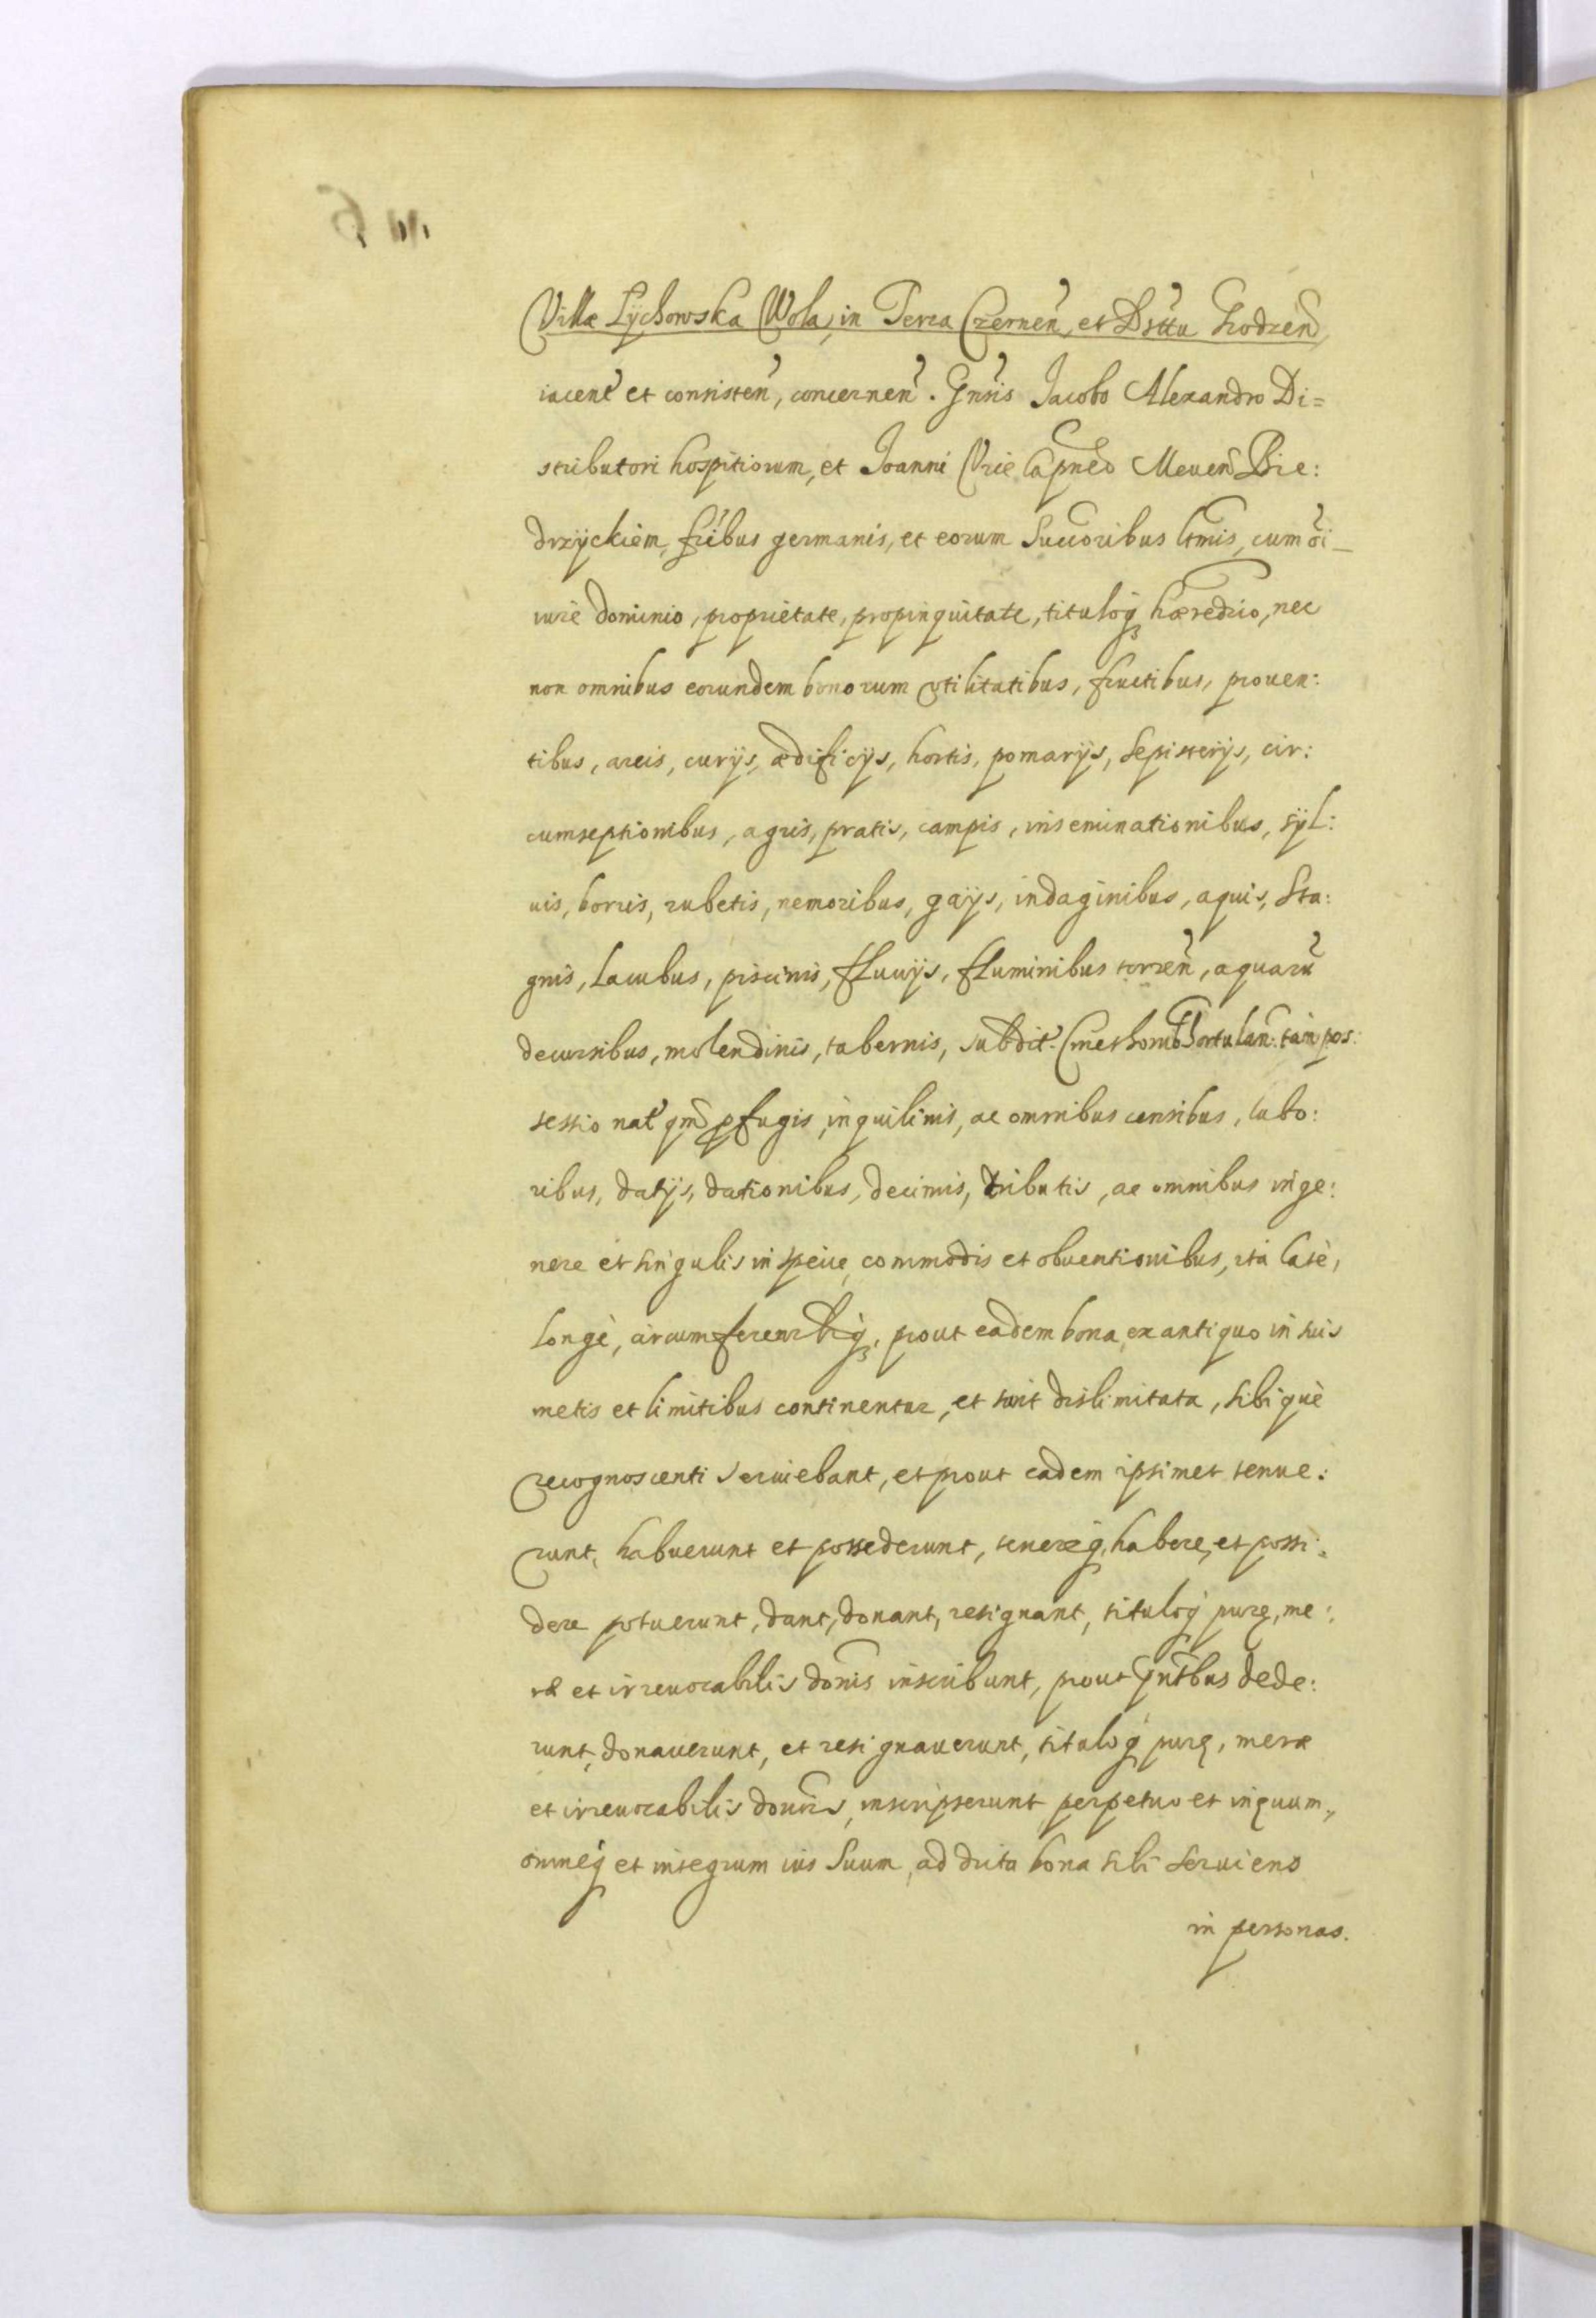 Villæ Lÿchowska Wola, in Terra Czernen̄, et Dsttu Grodzen̄,
iacen̄t et consisten̄, concernen̄. Gn̄sis Jacobo Alexandro Di=
stributori hospitiorum, et Joanni Meuen̄ Bie:
drzÿckiem, fribus germanis, et eorum Succoribus ltmis, cum oi
iure dominio, proprietate, propinquitate, tituloq̨ hæredrio, nec
non omnibus eorundem bonorum vtilitatibus, fructibus, prouen:
tibus, areis, curijs, ædificijs, hortis, pomarijs, Sepisterijs, cir:
cumseptionibus, agris, pratis, campis, inseminationibus, sÿl:
uis, borris, rubetis, nemoribus, gaijs, indaginibus, aquis, Sta:
gnis, Lacubus, piscinis, fluuijs, fluminibus torren̄, aquarū
decursibus, molendinis, tabernis, subdit. Cmethonib Hortulan: tam pos:
sessionat qm pfugis, inquilinis, ac omnibus censibus, labo:
ribus, datijs, dationibus, decimis, tributis, ac omnibus in ge:
nere et singulis in specie, commodis et obuentionibus, ita latè,
longè, circumferentrq̨, prout eadem bona, ex antiquo in suis
metis et limitibus continentur, et sunt dislimitata, sibiquè
recognoscenti seruiebant, et prout eadem ipsimet tenue:
runt, habuerunt et possederunt, tenereq̨, habere, et possi:
dere potuerunt, dant, donant, resignant, tituloq̨ puræ, me:
ræ et irreuocabilis donis inscribunt, prout qntbus dede:
runt, donauerunt, et resignauerunt, tituloq̨ puræ, meræ
et irreuocabilis donis, inscripserunt perpetuo et in æuum,
omneq̨ et integrum ius Suum, ad dicta bona sibi seruiens
in personas.